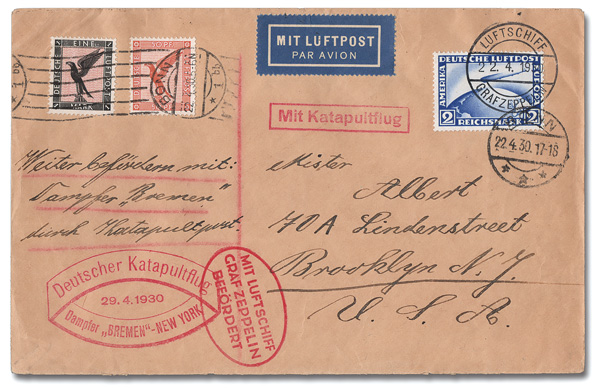 MIT LUFTPOST
PAR AVION
DEUTSCHE
EINE
LUFTPOST
MARK
50 PF
BONN
LUFTSCHIFF
22.4.19
GRAF ZEPPELIN
DEUTSCHE LUFTPOST
AMERIKA
2 REICHSMARK 2
22.4.30.17-18
Mit Katapultflug
Weiter befördern mit:
Dampfer „Bremen"
durch Katapultpost.
Mister
Albert
70A Lindenstreet
Brooklyn N.J.
U.S.A.
Deutscher Katapultflug
29.4.1930
Dampfer „BREMEN"-NEW YORK
MIT LUFTSCHIFF
GRAF ZEPPELIN
BEFÖRDERT